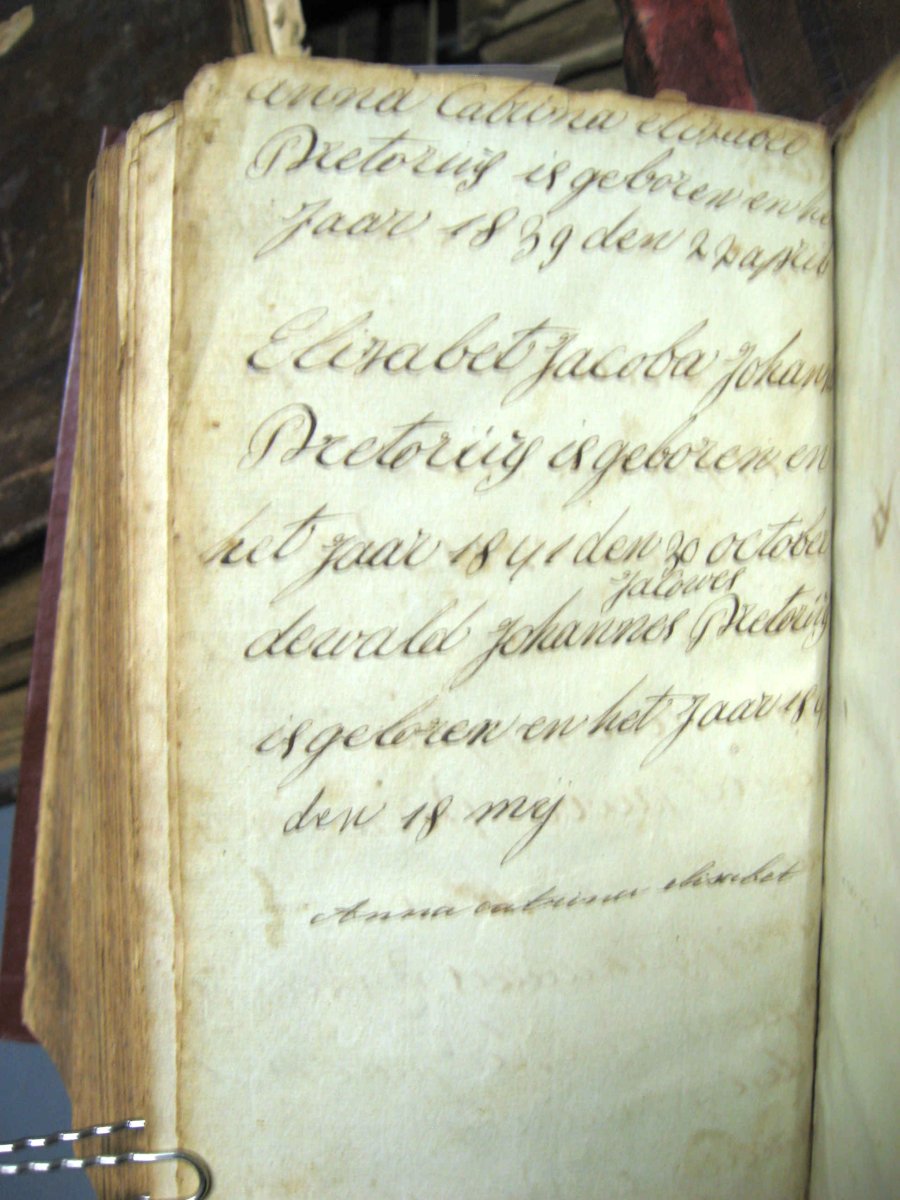 anna Catrina elisabet
Pretoriuÿs is geboren en he
Jaar 1839 den 22 april
Elisabet Jacoba Johann
Pretoriuÿs is geboren en
het Jaar 1841 den 20 october
Jacowes
dewald Johannes Pretoriuÿs
is geboren en het Jaar 184
den 18 meÿ
Anna catrina elisabet